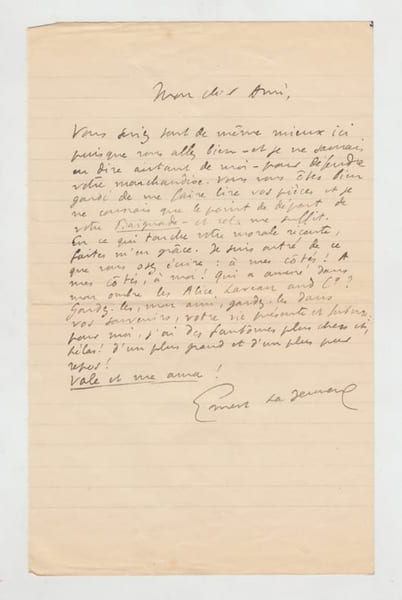 Mon cher Ami,
Vous seriez tout de même mieux ici
puisque vous allez bien - et je ne saurais
en dire autant de moi - pour défendre
votre marchandise. Vous vous êtes bien
gardé de me faire lire vos pièces et je
ne connais que le point de départ de
votre Baignade - et cela me suffit.
En ce qui touche votre morale récente,
faites m'en grâce. Je suis outré de ce
que vous osez écrire : à mes côtés ! A
mes côtés, à moi ! Qui a amené dans
mon ombre les Alice Laveau and Co ?
Gardez-les, mon ami, gardez-les dans
vos souvenirs, votre vie présente et future.
pour moi, j'ai des fantômes plus chers et,
hélas ! d'un plus grand et d'un plus pur
repos !
Vale et me ama !
Ernest La Jeunesse